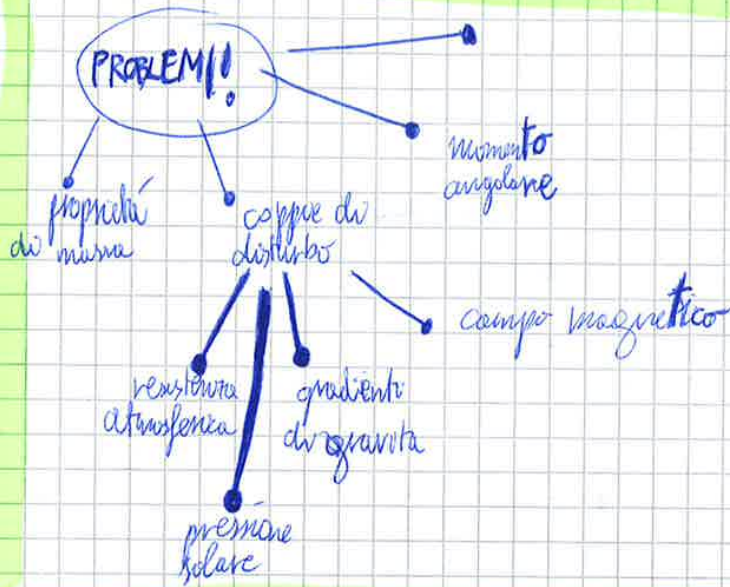 PROBLEMI!
momento
angolare
proprietà
di massa
coppie di
disturbo
campo magnetico
resistenza
atmosferica
gradienti
di gravita
pressione
solare